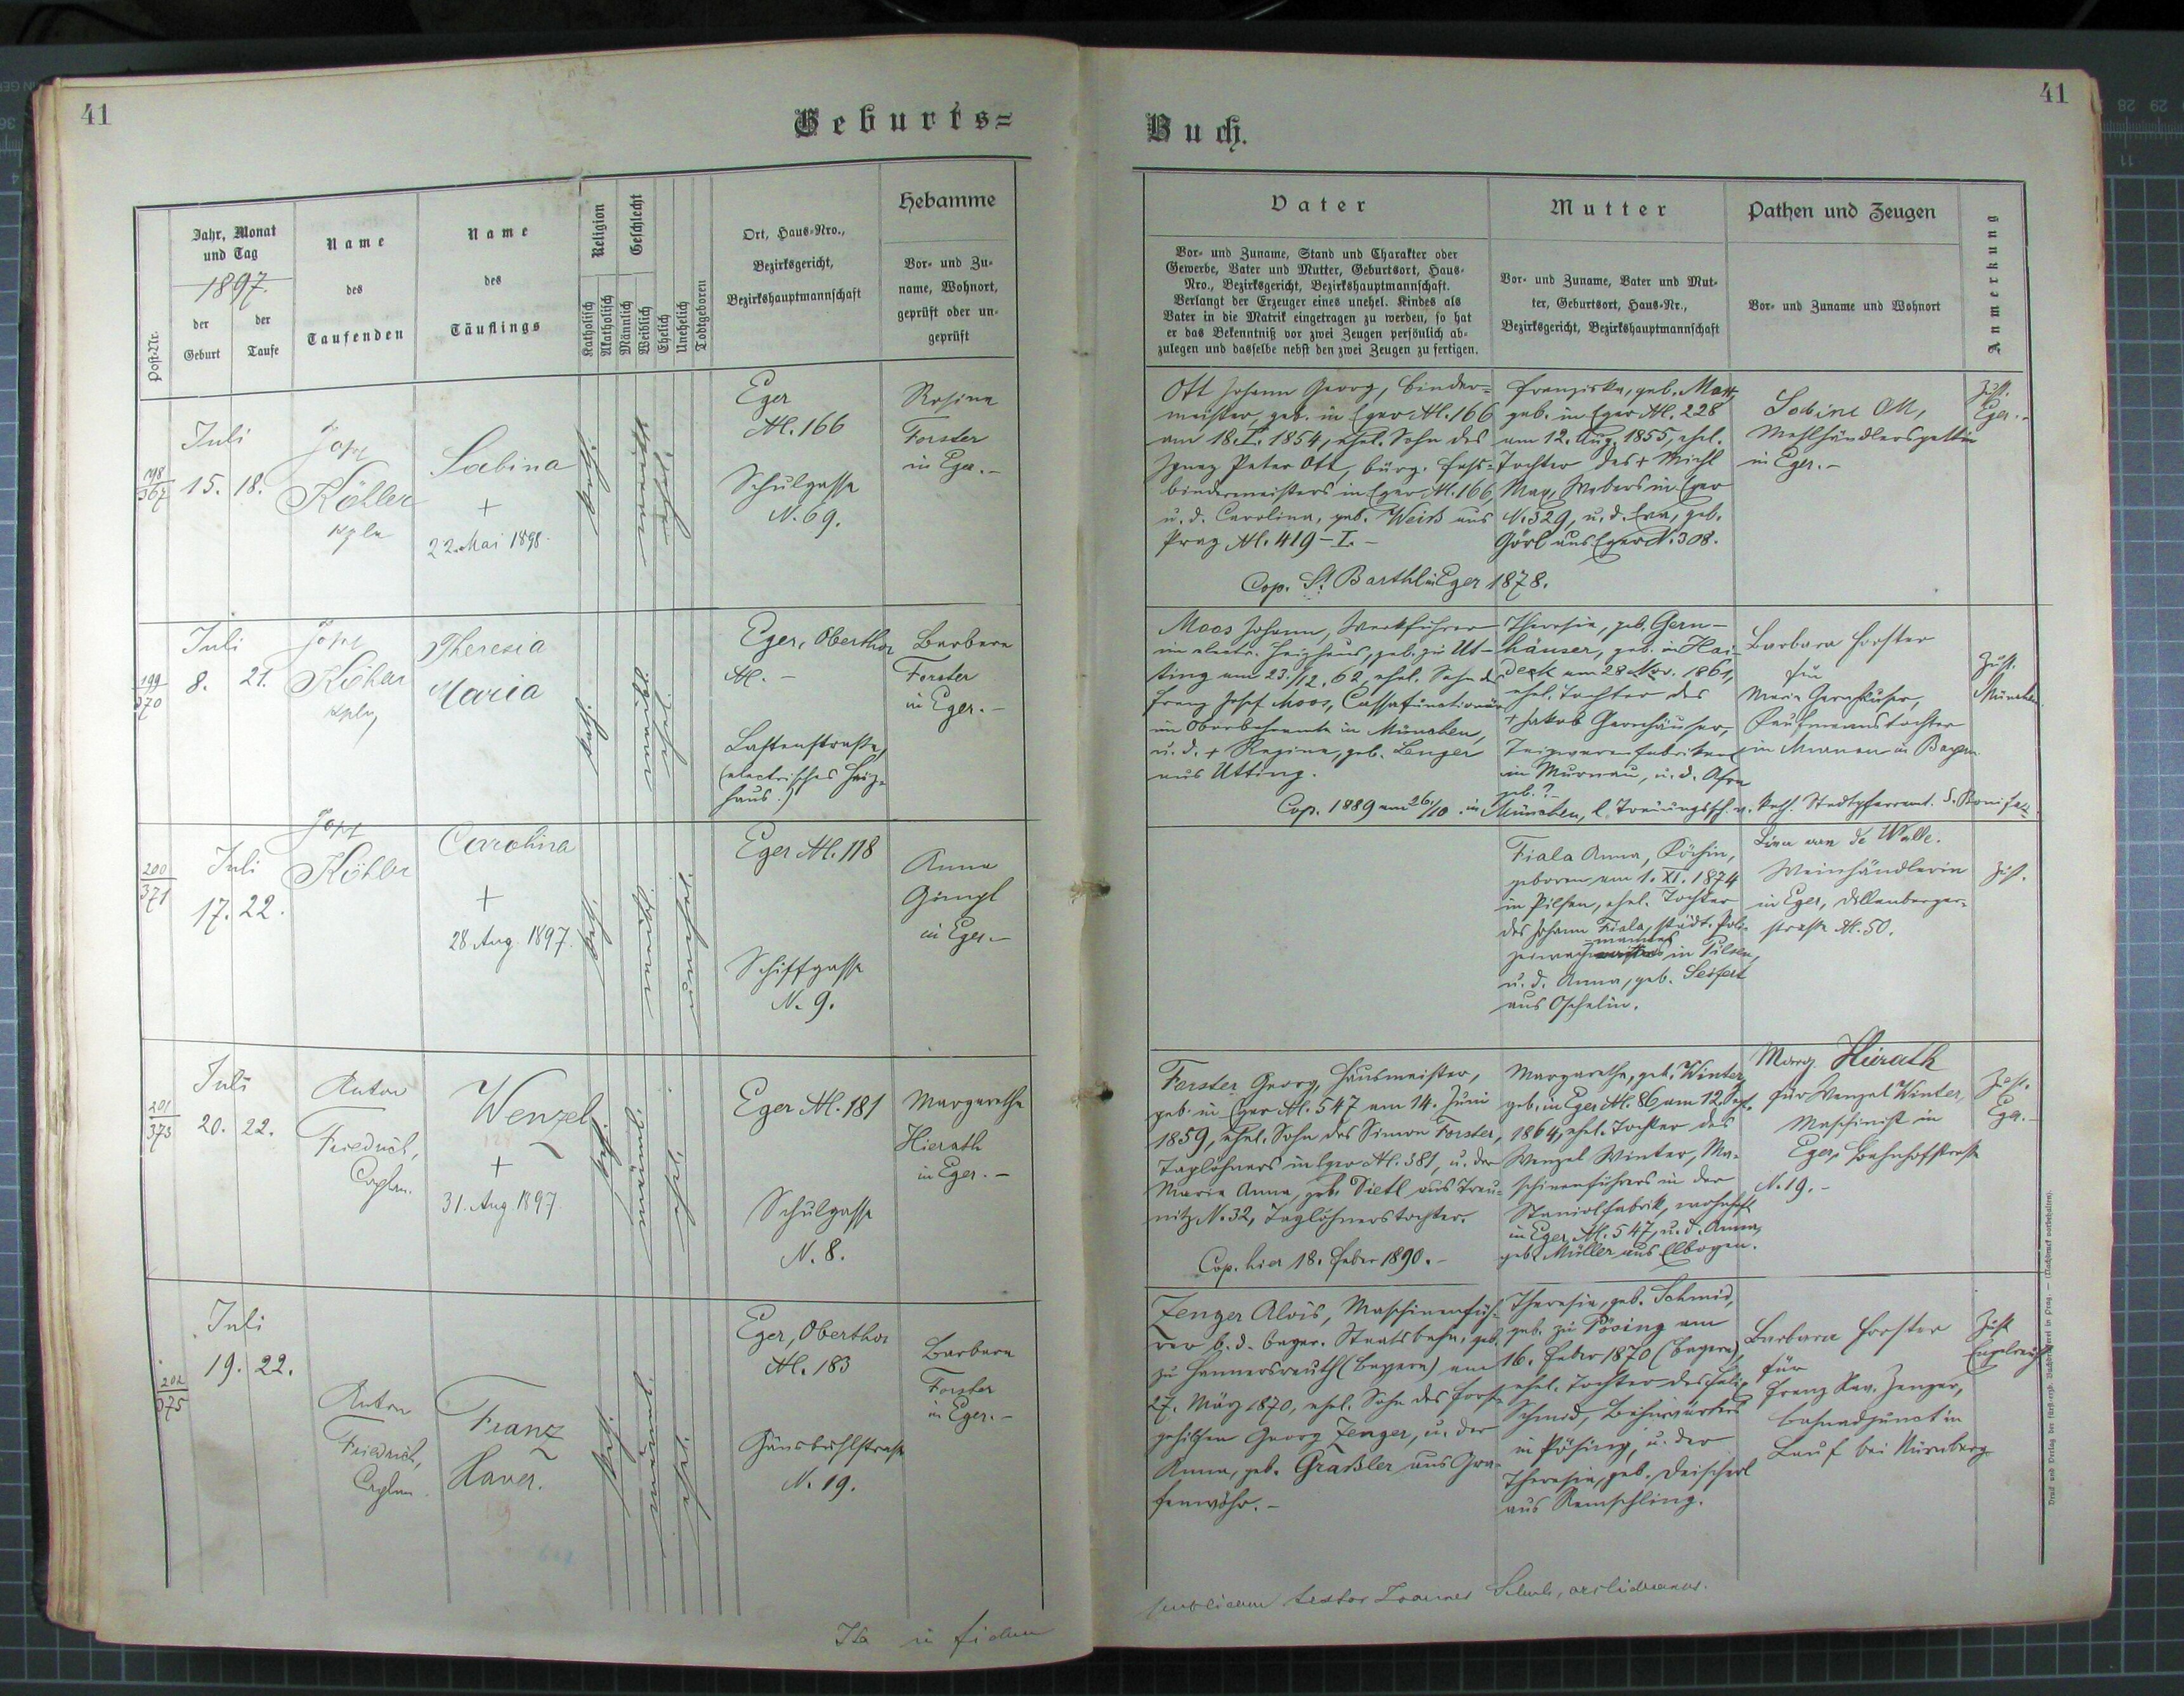 41
Geburts=
Jahr, Monat
und Tag
1897.
der
Geburt
der
Taufe
Post-Nr.
Name
des
Taufenden
Name
des
Täuflings
Religion
Katholisch
Akatholisch
Geschlecht
Männlich
Weiblich
Ehelich
Unehelich
Todtgeboren
Ort, Haus-Nro.,
Bezirksgericht,
Bezirkshauptmannschaft
Hebamme
Vor- und Zu-
name, Wohnort,
geprüft oder un-
geprüft
198
367
Juli
15. 18.
Josef
Köhler
Kpln
Sabina
+
22. Mai 1898.
kath.
Eger
N. 166
Schulgasse
N. 69.
Rosina
Forster
in Eger. –
199
370
Juli
8. 21.
Josef
Köhler
Kpln
Theresia
Maria
kath.
Eger, Oberthor
N. –
Lastenstraße,
(electrisches Heiz-
haus.)
Barbara
Forster
in Eger. –
200
371
Juli
17. 22.
Josef
Köhler
Carolina
+
28. Aug. 1897.
kath.
Eger N. 118
Schiffgasse
N. 9.
Anna
in Eger. –
201
373
Juli
20. 22.
Anton
Friedrich,
Caplan.
Wenzel
+
31. Aug. 1897.
kath.
Eger N. 181
Schulgasse
N. 8.
Margaretha
Hierath
in Eger. –
202
375
Juli
19. 22.
Anton
Friedrich,
Caplan.
Franz
Xaver.
kath.
ehel.
Eger, Oberthor
N. 183
Gänsbühlstrasse
N. 19.
Barbara
Forster
in Eger. –
Ita in fidem
41
Buch.
Vater
Vor- und Zuname, Stand und Charakter oder
Gewerbe, Vater und Mutter, Geburtsort, Haus-
Nro., Bezirksgericht, Bezirkshauptmannschaft.
Verlangt der Erzeuger eines unehel. Kindes als
Vater in die Matrik eingetragen zu werden, so hat
er das Bekenntniß vor zwei Zeugen persönlich ab-
zulegen und dasselbe nebst den zwei Zeugen zu fertigen.
Mutter
Vor- und Zuname, Vater und Mut-
ter, Geburtsort, Haus-Nr.,
Bezirksgericht, Bezirkshauptmannschaft
Pathen und Zeugen
Vor- und Zuname und Wohnort
Anmerkung
Ott Johann Georg, Binder-
meister, geb. in Eger N. 166
am 18. I. 1854, ehel. Sohn des
Ignaz Peter Ott, bürg. Faß-
bindermeisters in Eger N. 166,
u. d. Carolina, geb. Weiß aus
Prag N. 419 – I. –
Cop. St. Barthl. in Eger 1878.
Franziska, geb.
geb. in Eger N. 228
am 12. Aug. 1855, ehel.
Tochter des + Michl
Webers in Eger
N. 329, u. d. Eva, geb.
Görl aus Eger N. 308.
Sabine Ott,
Mehlhändlersgattin
in Eger. –
Zust.
Eger. –
Moos Johann, Werkführer
im electr. Heizhaus, geb. zu Ut-
ting am 23./12. 62, ehel. Sohn d.
Franz Josef Moos,
in München,
u. d. + Regina, geb. Lenger
aus Utting.
Theresia, geb. Gern-
häuser, geb. in Hai-
deck am 28. Nov. 1861,
ehel. Tochter des
+ Jakob Gernhäuser,
in Murnau, u. d. Afra
geb. ?
Cop. 1889 am 26./10. in München, l. Trauungssch. v. kath. Stadtpfarramt. S. Bonifaz.
Barbara Forster
für
Maria Gernhäuser,
Kaufmannstochter
in Murnau in Bayern
Zust.
München.
Fiala Anna, Köchin,
geboren am 1. XI. 1874
in Pilsen, ehel. Tochter
des Johann Fiala, städt. Poli-
in Pilsen,
u. d. Anna, geb. Seifert
aus Oschelin.
Weinhändlerin
in Eger,
straße N. 50.
Zust.
Forster Georg, Hausmeister,
geb. in Eger N. 547 am 14. Juni
1859, ehel. Sohn des Simon Forster,
Taglöhners in Eger N. 381, u. der
Maria Anna, geb. Dietl aus Treu-
nitz N. 32, Taglöhnerstochter.
Cop. hier 18. Feber 1890. –
Margaretha, geb. Winter
geb. in Eger N. 86 am 12. Sept.
1864, ehel. Tochter des
Wenzel Winter, Ma-
schinenführers in der
Stanniolfabrik, wohnhft.
in Eger N. 547, u. d. Anna,
geb. Müller aus Elbogen.
Marg. Hierath
für Wenzel Winter,
Maschinist in
Eger, Bahnhofstrasse
N. 19. –
Zust.
Eger. –
Zenger Alois, Maschinenfüh-
rer b. d. bayer. Staatsbahn, geb.
zu Hannersreuth (Bayern) am
27. März 1870, ehel. Sohn des Forst-
gehilfen Georg Zenger, u. der
Anna, geb. Graßler aus Gra-
fenwöhr. –
Theresia, geb. Schmid,
geb. zu Pösing am
16. Feber 1870 (Bayern),
ehel. Tochter des
Schmid, Bahnwärters
in Pösing, u. der
Theresia, geb.
aus
Barbara Forster
für
Franz Xav. Zenger,
Bahnadjunct in
Lauf bei Nürnberg
Zust.
publicam testor Joannes
Druck und Verlag der fürst-erzb. Buchdruckerei in Prag. — (Nachdruck vorbehalten).